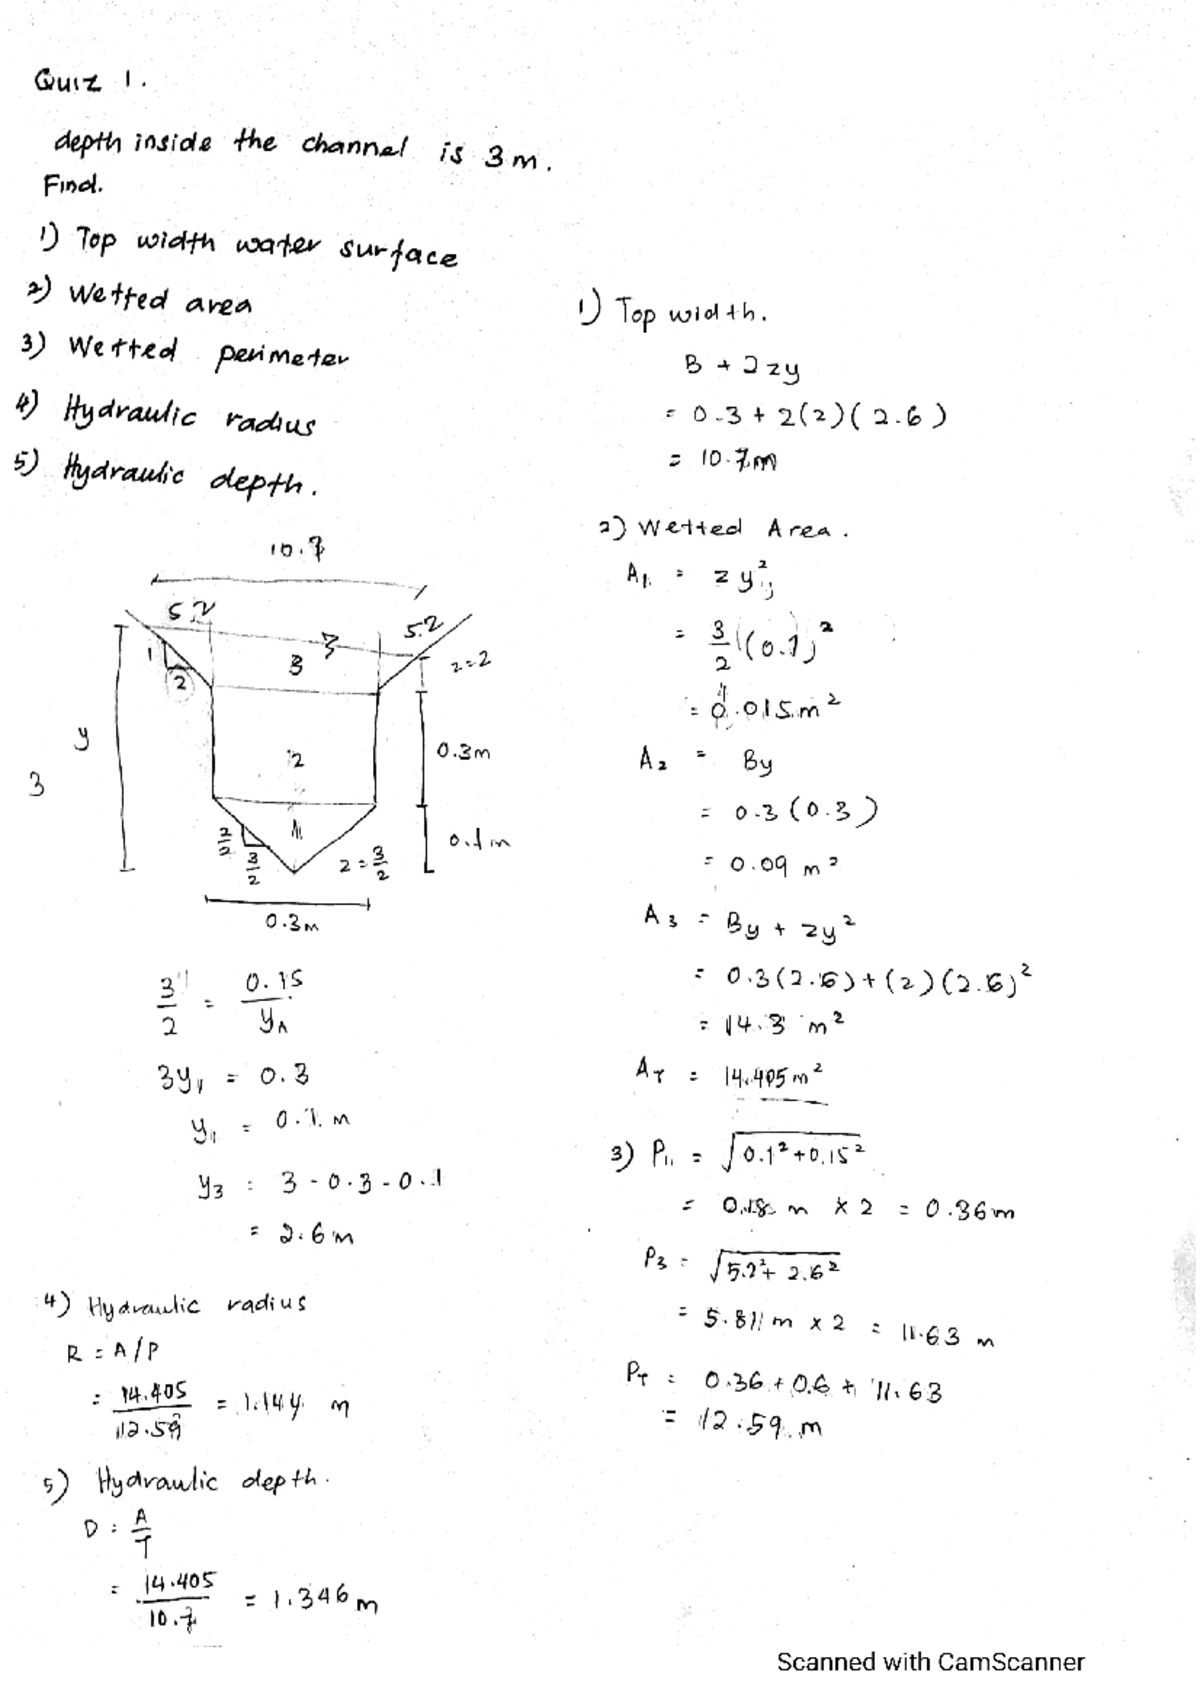 Quiz 1.
depth inside the channel is 3m.
Find.
1) Top width water surface
2) Wetted area
3) Wetted perimeter
4) Hydraulic radius
5) Hydraulic depth.
10.7
5.2
5.2
1
2
3
z=2
y
3
2
0.3m
1
0.1m
2/2
3/2
z = 3/2
0.3m
3/2 = 0.15/y1
3y1 = 0.3
y1 = 0.1 m
y3 = 3 - 0.3 - 0.1
= 2.6m
4) Hydraulic radius
R = A/P
= 14.405/12.59 = 1.144 m
5) Hydraulic depth.
D = A/T
= 14.405/10.7 = 1.346 m
1) Top width.
B + 2zy
= 0.3 + 2(2)(2.6)
= 10.7m
2) Wetted Area.
A1 = zy²
= 3/2 (0.1)²
= 0.015 m²
A2 = By
= 0.3 (0.3)
= 0.09 m²
A3 = By + zy²
= 0.3(2.6)+(2)(2.6)²
= 14.3 m²
AT = 14.405 m²
3) P1 = √0.1²+0.15²
= 0.18 m × 2 = 0.36m
P3 = √5.2²+ 2.6²
= 5.811 m × 2 = 11.63 m
PT = 0.36 + 0.6 + 11.63
= 12.59 m
Scanned with CamScanner